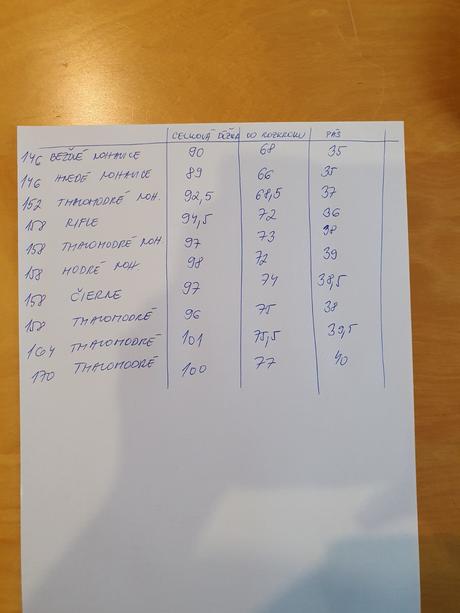 CELKOVÁ DĹŽKA DO ROZKROKU PÁS
146 BÉŽOVÉ NOHAVICE 90 68 35
146 HNEDÉ NOHAVICE 89 66 35
152 TMAVOMODRÉ NOH. 92,5 68,5 37
158 RIFLE 94,5 72 36
158 TMAVOMODRÉ NOH. 97 73 38
158 MODRÉ NOH. 98 72 39
158 ČIERNE 97 74 38,5
158 TMAVOMODRÉ 96 75 38
164 TMAVOMODRÉ 101 75,5 39,5
170 TMAVOMODRÉ 100 77 40